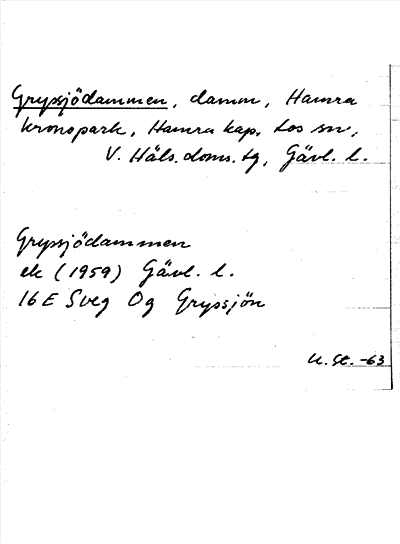 Grypsjödammen, damm, Hamra
kronopark, Hamra kap, Los sn,
V. Häls. doms. tg, Gävl. l.
Grypsjödammen
ek (1959) Gävl. l.
16 E Sveg Og Grypsjön
U. St. -63